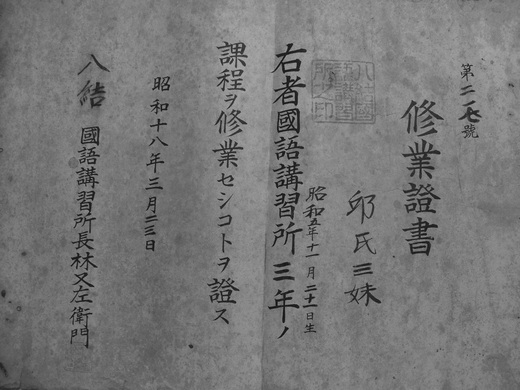 第二一七號
修業證書
邱氏三妹
昭和五年十一月二十一日生
右者國語講習所三年ノ
課程ヲ修業セシコトヲ證ス
昭和十八年三月二三日
八結 國語講習所長林又左衛門